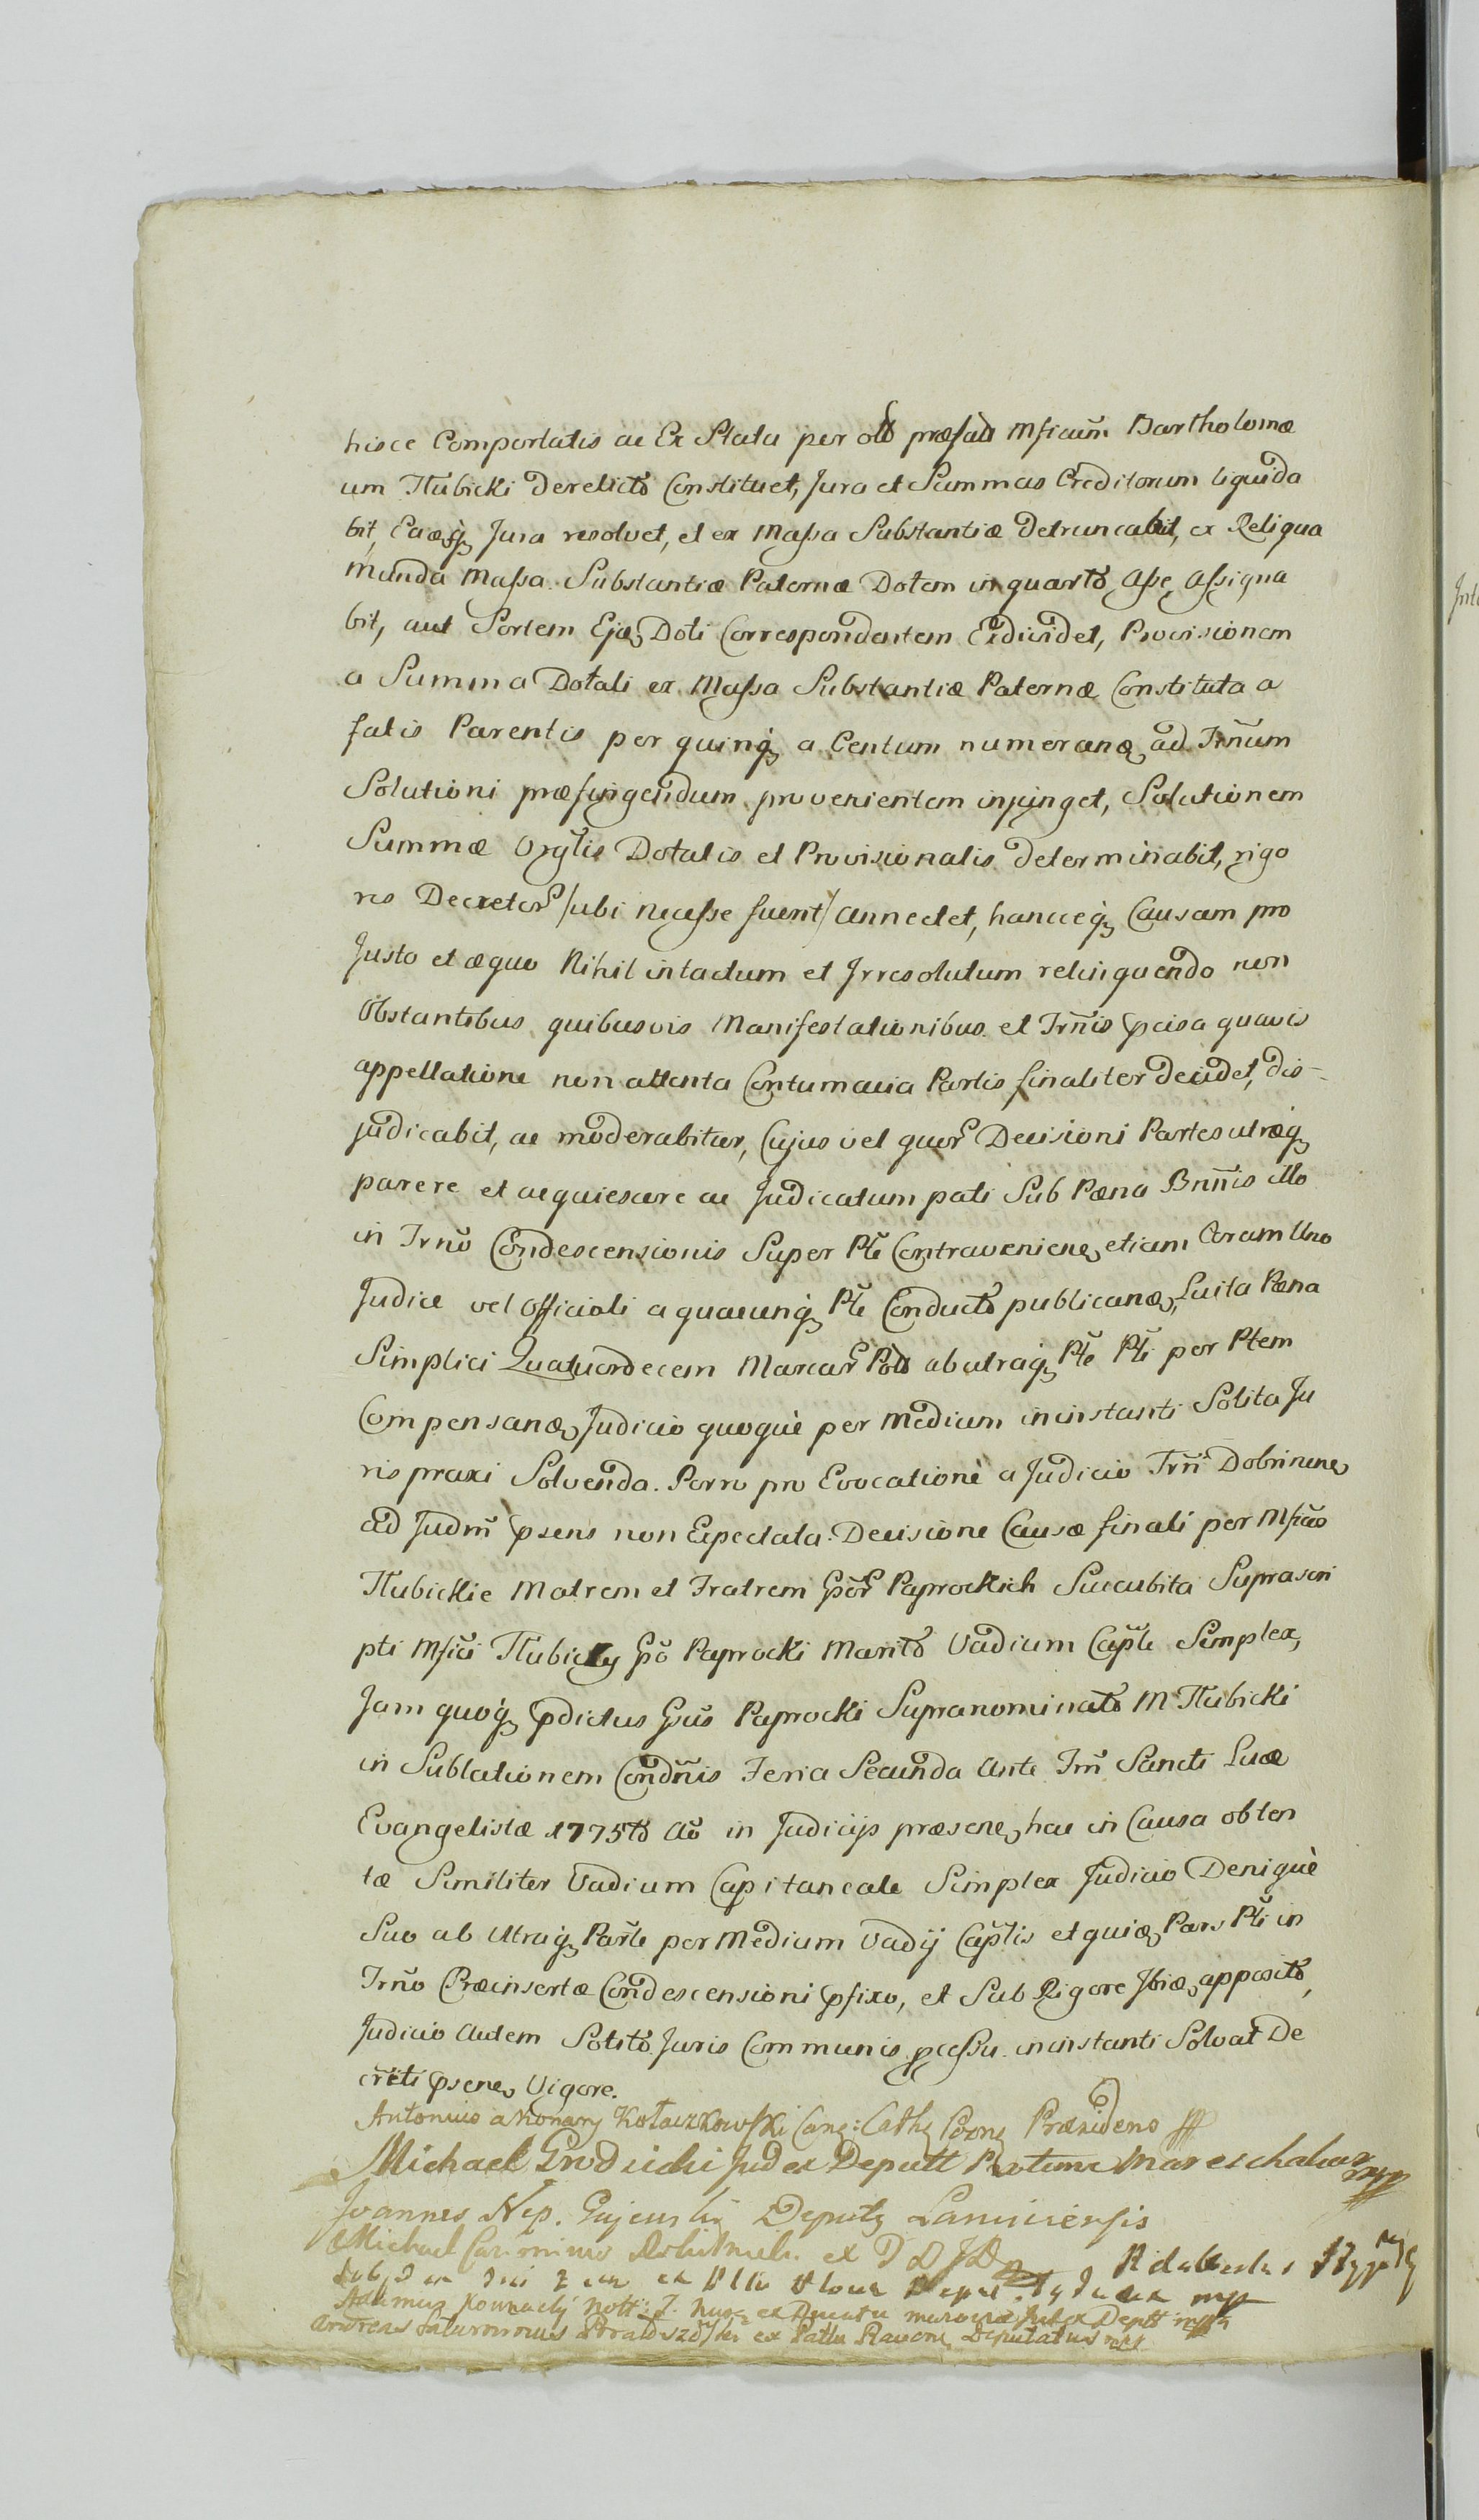 hisce Comportatis ac Ex Stata per olб præfatб Mficũm Bartholomæ
um Tłubicki derelictб Constituet, Jura et Summas Creditorum liquida
bit, Eaqꝫ Jura resolvet, et ex Massa Substantiæ detruncabit, ex Reliqua
munda Massa Substantiæ Paternæ Dotem in quarto Asse, Assigna
bit, aut Sortem Ejꝫ Doti Correspondentem Exdividet, Provisionem
a Summa Dotali ex Massa Substantiæ Paternæ Constituta a
fatis Parentis per quinqꝫ a Centum numeranꝫ ad Trñum
Solutioni præfingendum provenientem injunget, Solutionem
Summæ Orglis Dotalis et Provisionalis determinabit, rigo
res Decretor /ubi necesse fuerit/ annectet, hancceqꝫ Causam pro
Justo et æquo Nihil intactum et Irresolutum relinquendo non
Obstantibus quibusvis Manifestationibus et Trñis ꝓcisa quavis
appellatione non attenta Contumacia Partis finaliter decidet, dis-
judicabit, ac moderabitur, Cujus vel quor Decisioni Partes utræqꝫ
parere et acquiescere ac Judicatum pati Sub Pæna Bnñis illo
in Trnõ Condescensionis Super Ptẽ Contravenienꝫ etiam Coram Uno
Judice vel Officiali a quacunqꝫ Ptẽ Conductб publicanꝫ, Luita Pæna
Simplici Quatuordecem Marcar Polб ab utraqꝫ Ptẽ Pti per Ptem
Compensanꝫ Judicio quoquè per medium in instanti Solita Ju
ris praxi Solvenda. Porro pro Evocationè a Judicio Trñ Dobrinenꝫ
ad Judm̃ ꝓsens non Expectata Decisione Causæ finali per Mficõs
Tłubickie Matrem et Fratrem Gor Paprockich Succubita Suprascri
pti Mfici Tłubicky Gõ Paprocki Maritб Vadium Caplẽ Simplex,
Jam quoqꝫ ꝓdictus Gũs Paprocki Supranominatб M Tłubicki
in Sublationem Condñis Feria Secunda Ante Fm̃ Sancti Lucæ
Evangelistæ 1775tб Aõ in Judicijs præsenꝫ hac in Causa obten
tæ Similiter Vadium Capitaneale Simplex Judicio Deniquè
Suo ab Utraqꝫ Partẽ per Medium Vadij Caplis et quiꝫ Pars Pti in
Trño Præinsertæ Condescensioni ꝓfixo, et Sub Rigore Ibiꝫ appositб,
Judicio Autem Solitб Juris Communis ꝓcessu in instanti Solvat De
creti ꝓsenꝫ Vigore.
Antonius a Konary Kołaczkowski Canꝫ: Cathꝫ Posnꝫ Præsidens
Michael Grodzicki Judex Deputt Protunc Mareschalcus mpp
Joannes Nep. Deputꝫ Lanciciensis
Michael
Judex mpp
Adamus Kownacki Nott: ex Ducatu Masoviæ Judex Deptt mpp
Andreas Saturninus ex Pallu Ravenꝫ Deputatus mpp